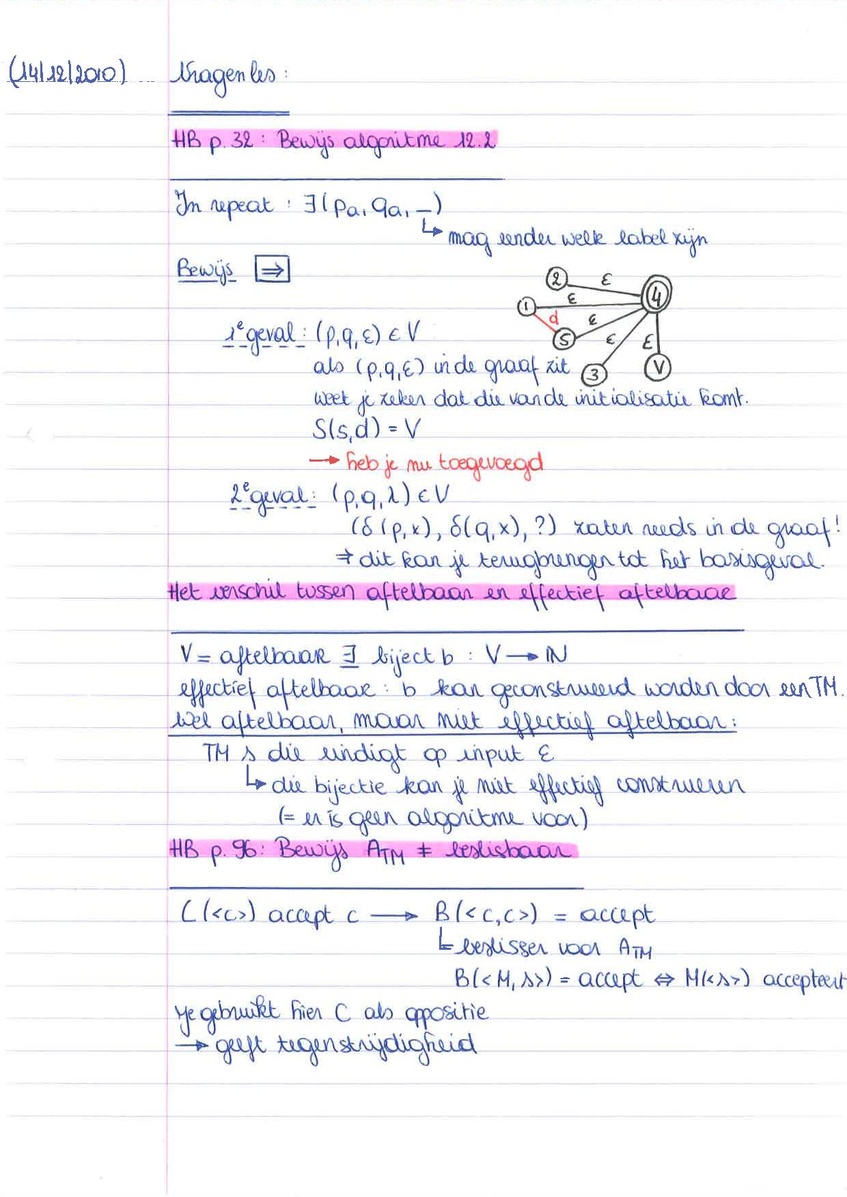 (14/12/2010) ... Vragenles:
HB p. 32 : Bewijs algoritme 12.2
In repeat : ∃(pa, qa, _)
↳ mag eender welk label zijn
Bewijs ⇒
2 ε 4
1 ε
d 5 ε
3 ε
V ε
1e geval : (p,q,ε) ∈ V
als (p,q,ε) in de graaf zit
weet je zeker dat die van de initialisatie komt.
S(s,d) = V
→ heb je nu toegevoegd
2e geval : (p,q,λ) ∈ V
(δ(p,x), δ(q,x), ?) zaten reeds in de graaf!
⇒ dit kan je terugbrengen tot het basisgeval.
Het verschil tussen aftelbaar en effectief aftelbaar
V = aftelbaar ∃ biject b : V → ℕ
effectief aftelbaar : b kan geconstrueerd worden door een TM.
Wel aftelbaar, maar niet effectief aftelbaar :
TM s die eindigt op input ε
↳ die bijectie kan je niet effectief construeren
(= er is geen algoritme voor)
HB p. 96 : Bewijs ATM ≠ beslisbaar
C(<c>) accept c → B(<c,c>) = accept
↳ beslisser voor ATM
B(<M,s>) = accept ⇔ M(<s>) accepteert
Je gebruikt hier C als oppositie
→ geeft tegenstrijdigheid